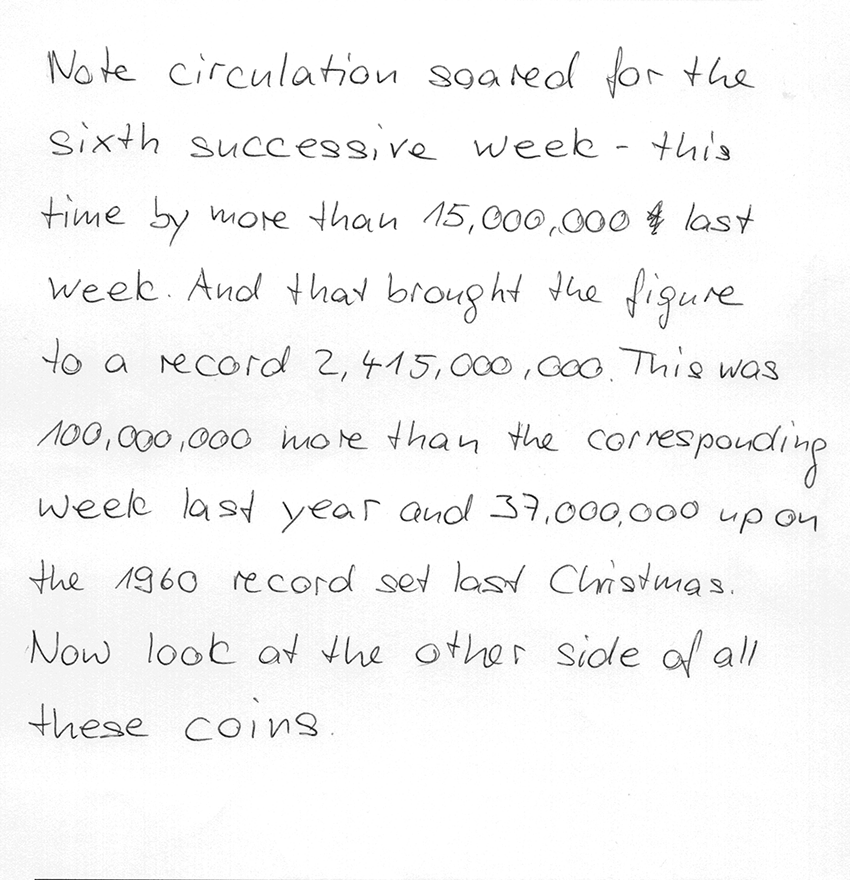 Note circulation soared for the
sixth successive week - this
time by more than 15,000,000 last
week. And that brought the figure
to a record 2,415,000,000. This was
100,000,000 more than the corresponding
week last year and 37,000,000 up on
the 1960 record set last Christmas.
Now look at the other side of all
these coins.